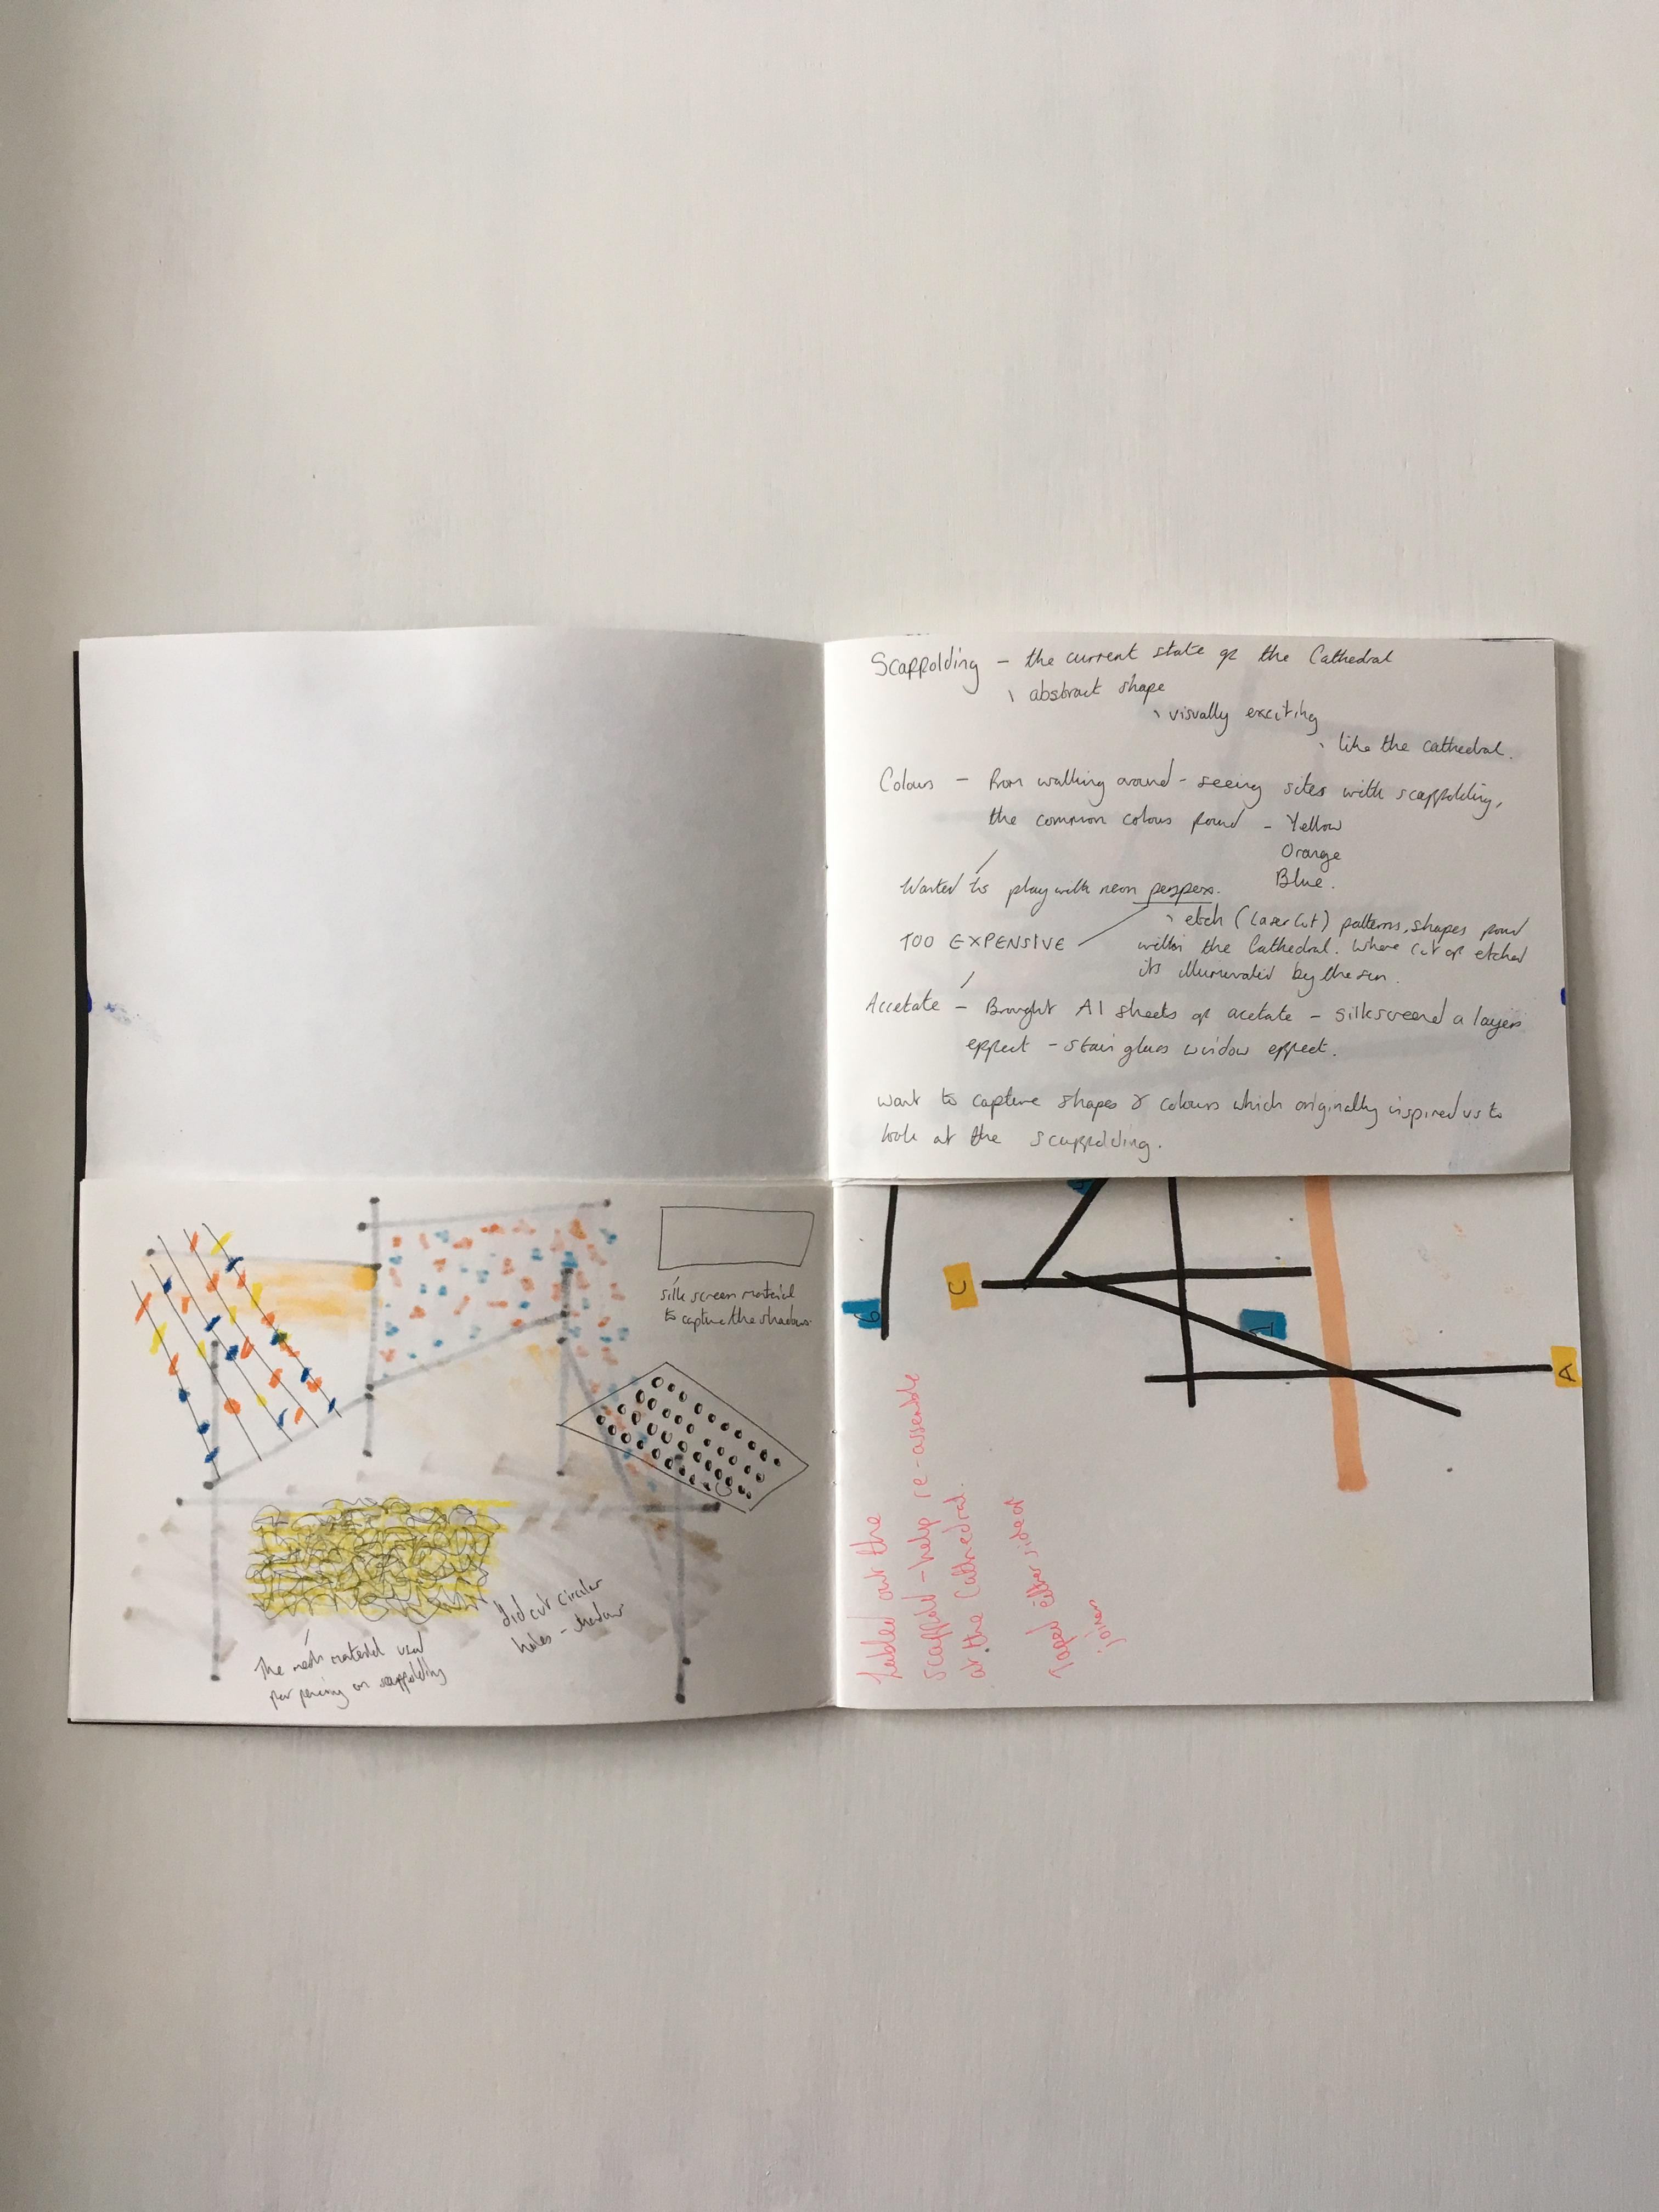 Scaffolding – the current state of the Cathedral
\ abstract shape
\ visually exciting
\ like the cathedral.
Colours – From walking around – seeing sites with scaffolding,
the common colours found – Yellow
Orange
Blue.
Wanted to play with neon perspex.
\ etch (Laser Cut) patterns, shapes found
TOO EXPENSIVE
within the Cathedral. Where cut or etched
its illuminated by the sun.
Accetate – Brought A1 sheets of acetate – silkscreened a layers
effect – stain glass window effect.
want to capture shapes & colours which originally inspired us to
look at the scaffolding.
silk screen material
to capture the shadows.
did cut circular
holes – shadow
The mesh material used
for fencing on scaffolding
C
6
1
A
Labled out the
scaffold – help re-assemble
at the Cathedral.
Taped either side of
joines